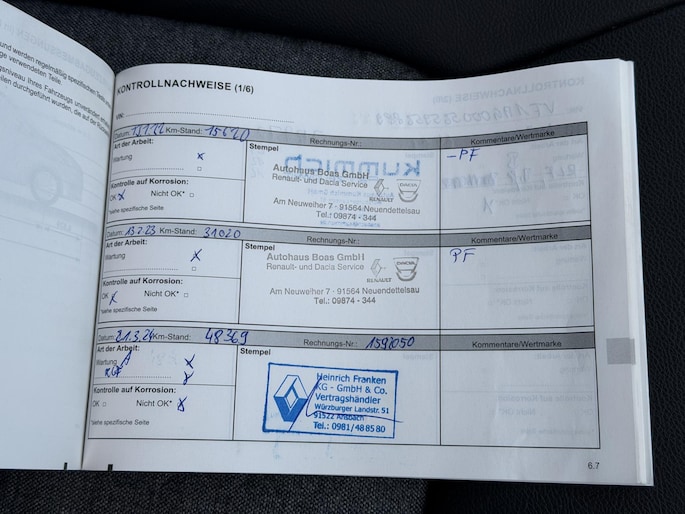 und werden regelmäßig spezifischen
ge verwendeten Teile.
KONTROLLNACHWEISE (1/6)
VIN:
Datum: 13.1.22 Km-Stand: 15620 Rechnungs-Nr.: Kommentare/Wertmarke
Art der Arbeit: Stempel -PF
Wartung x
Autohaus Boas GmbH
Renault- und Dacia Service
RENAULT DACIA
Kontrolle auf Korrosion:
OK x Nicht OK*
Am Neuweiher 7 · 91564 Neuendettelsau
Tel.: 09874 - 344
*siehe spezifische Seite
Datum: 13.2.23 Km-Stand: 31020 Rechnungs-Nr.: Kommentare/Wertmarke
Art der Arbeit: Stempel PF
Wartung x
Autohaus Boas GmbH
Renault- und Dacia Service
RENAULT DACIA
Kontrolle auf Korrosion:
OK x Nicht OK*
Am Neuweiher 7 · 91564 Neuendettelsau
Tel.: 09874 - 344
*siehe spezifische Seite
Datum: 21.3.24 Km-Stand: 48369 Rechnungs-Nr.: 1592050 Kommentare/Wertmarke
Art der Arbeit: Stempel
Wartung A x
x
Kontrolle auf Korrosion:
OK Nicht OK* x
*siehe spezifische Seite
Heinrich Franken
KG - GmbH & Co.
Vertragshändler
Würzburger Landstr. 51
91522 Ansbach
Tel.: 0981/48 85 80
6.7